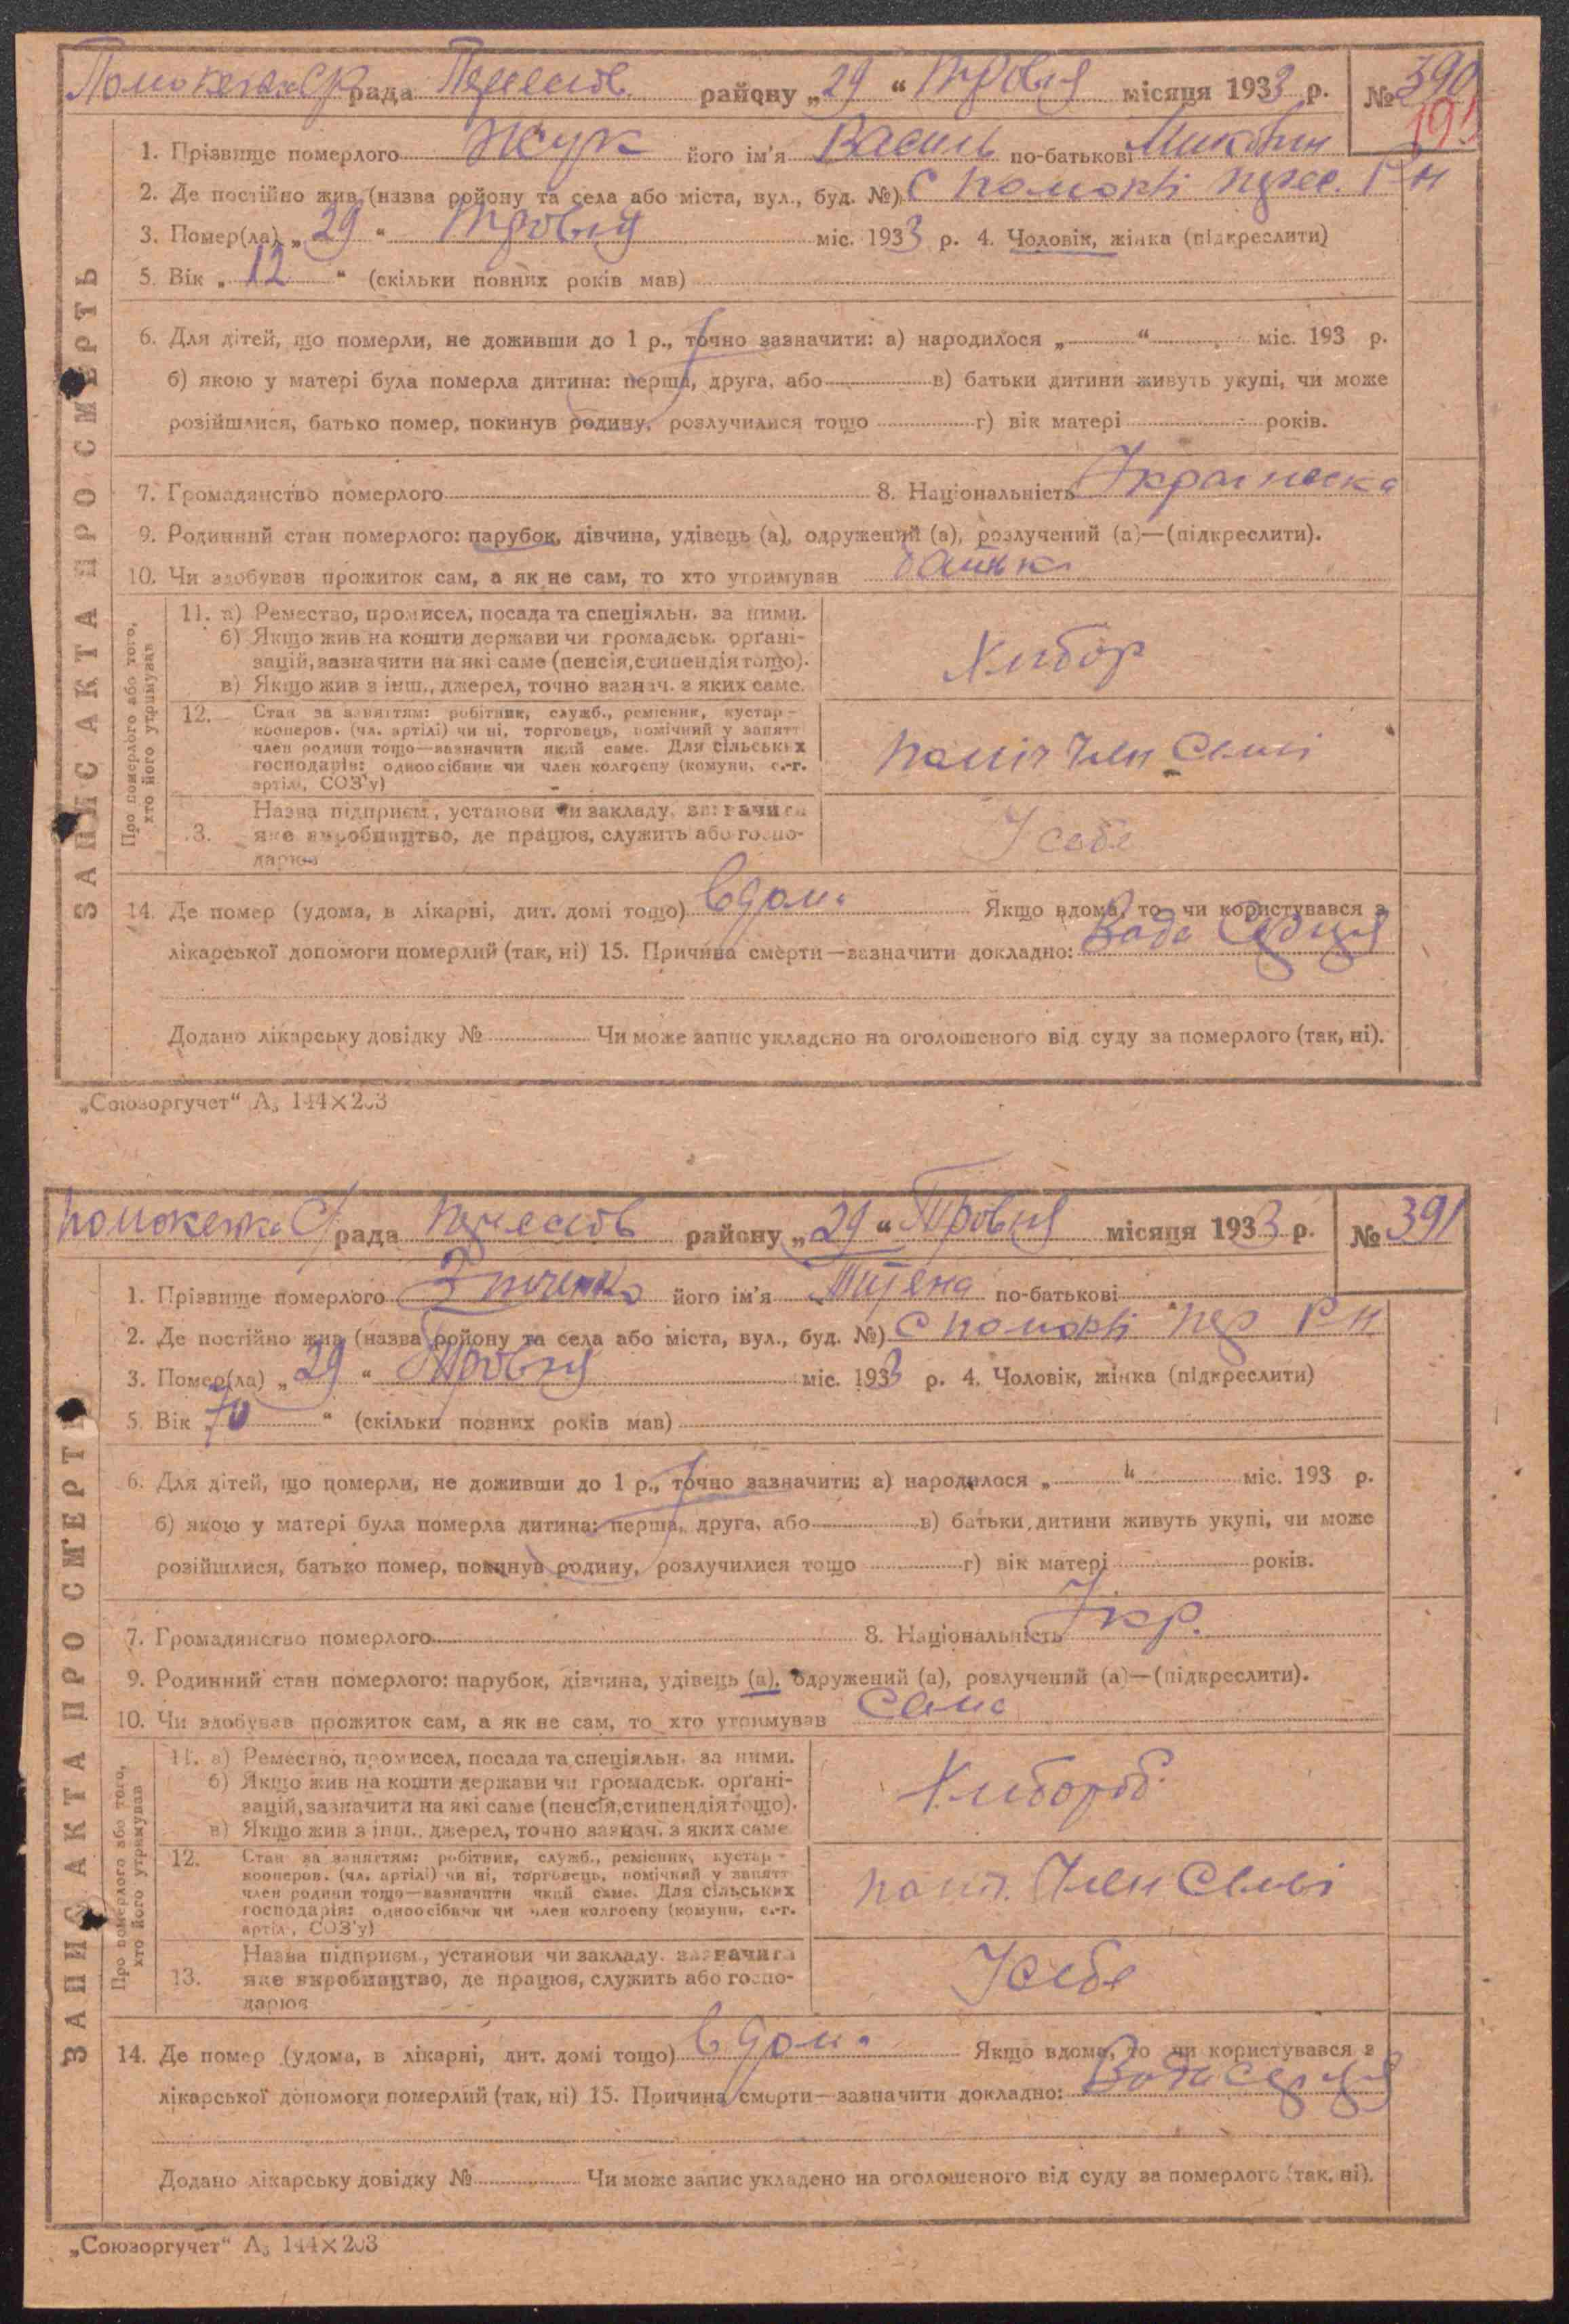 рада районну „29“ Тровня місяця 1933 р. № 390
191
1. Прізвище померлого Жук його ім'я Василь по-батькові
2. Де постійно жив (назва ройону та села або міста, вул., буд. №) с Помокні Р-н
3. Помер(ла) „29“ Тровня міс. 1933 р. 4. Чоловік, жінка (підкреслити)
5. Вік „12“ (скільки повних років мав)
6. Для дітей, що померли, не доживши до 1 р., точно зазначити: а) народилося „ “ міс. 193 р.
б) якою у матері була померла дитина: перша, друга, або в) батьки дитини живуть укупі, чи може
розійшлися, батько помер, покинув родину, розлучилися тощо г) вік матері років.
7. Громадянство померлого 8. Національність Українска
9. Родинний стан померлого: парубок, дівчина, удівець (а), одружений (а), розлучений (а)—(підкреслити).
10. Чи здобував прожиток сам, а як не сам, то хто утримував батьки
ЗАПИС АКТА ПРО СМЕРТЬ
Про померлого або того, хто його утримував
11. а) Ремество, промисел, посада та спеціяльн. за ними.
б) Якщо жив на кошти держави чи громадськ. орґані-
зацій, зазначити на які саме (пенсія, стипендія тощо).
в) Якщо жив з інш., джерел, точно зазнач. з яких саме.
Хлібор
12. Стан за заняттям: робітник, служб., ремісник, кустар-
кооперов. (чл. артілі) чи ні, торговець, помічний у занятт
член родини тощо—зазначити який саме. Для сільських
господарів: одноосібник чи член колгоспу (комуни, с.-г.
артілі, СОЗ'у)
поміч Член Семі
13. Назва підприєм., установи чи закладу, зазначити
яке виробництво, де працює, служить або госпо-
дарює
У себе
14. Де помер (удома, в лікарні, дит. домі тощо) вдома Якщо вдома, то чи користувався з
лікарської допомоги померлий (так, ні) 15. Причина смерти—зазначити докладно: Вада Серця
Додано лікарську довідку № Чи може запис укладено на оголошеного від суду за померлого (так, ні).
„Союзоргучет“ А₅ 144×203
рада району „29“ Тровня місяця 1933 р. № 391
1. Прізвище померлого його ім'я по-батькові
2. Де постійно жив (назва ройону та села або міста, вул., буд. №) с Помокні пер Р-н
3. Помер(ла) „29“ Тровня міс. 1933 р. 4. Чоловік, жінка (підкреслити)
5. Вік 70 “ (скільки повних років мав)
6. Для дітей, що померли, не доживши до 1 р., точно зазначити: а) народилося „ “ міс. 193 р.
б) якою у матері була померла дитина: перша, друга, або в) батьки дитини живуть укупі, чи може
розійшлися, батько помер, покинув родину, розлучилися тощо г) вік матері років.
7. Громадянство померлого 8. Національність Укр.
9. Родинний стан померлого: парубок, дівчина, удівець (а), одружений (а), розлучений (а)—(підкреслити).
10. Чи здобував прожиток сам, а як не сам, то хто утримував Сама
ЗАПИС АКТА ПРО СМЕРТЬ
Про померлого або того, хто його утримував
11. а) Ремество, промисел, посада та спеціяльн. за ними.
б) Якщо жив на кошти держави чи громадськ. орґані-
зацій, зазначити на які саме (пенсія, стипендія тощо).
в) Якщо жив з інш., джерел, точно зазнач. з яких саме
Хлібороб
12. Стан за заняттям: робітник, служб., ремісник, кустар-
кооперов. (чл. артілі) чи ні, торговець, помічний у занятт
член родини тощо—зазначити який саме. Для сільських
господарів: одноосібник чи член колгоспу (комуни, с.-г.
артілі, СОЗ'у)
поміч. Член Семі
13. Назва підприєм., установи чи закладу, зазначити
яке виробництво, де працює, служить або госпо-
дарює
У себе
14. Де помер (удома, в лікарні, дит. домі тощо) вдома Якщо вдома, то чи користувався з
лікарської допомоги померлий (так, ні) 15. Причина смерти—зазначити докладно: Вада Серця
Додано лікарську довідку № Чи може запис укладено на оголошеного від суду за померлого (так, ні).
„Союзоргучет“ А₅ 144×203